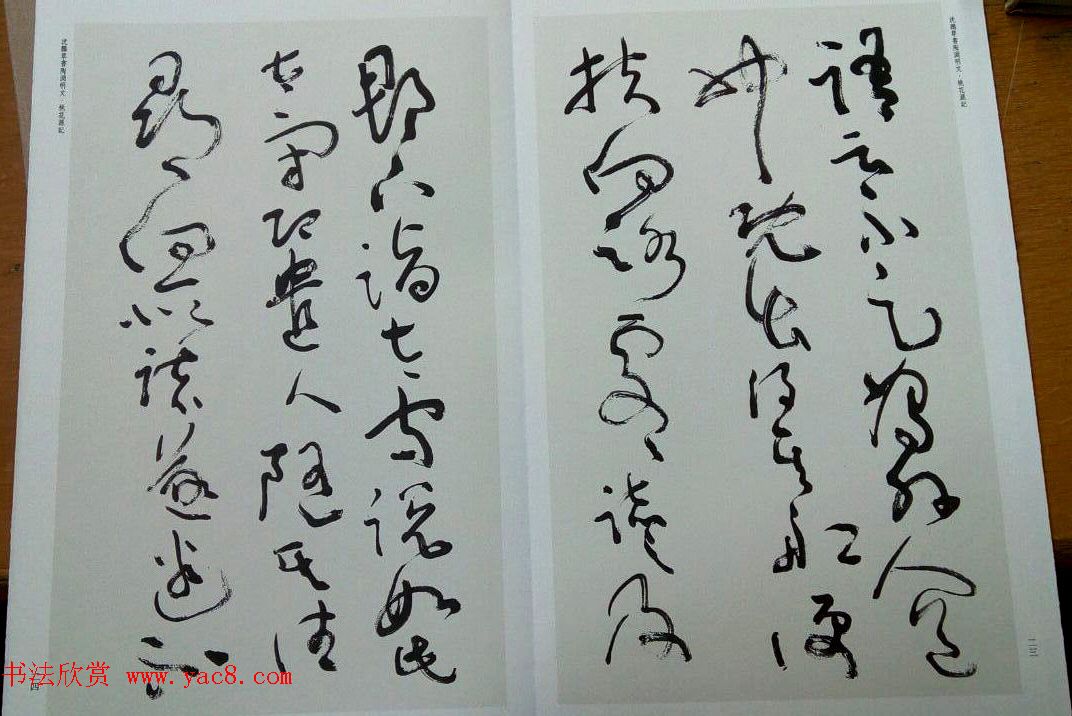 沈鵬草書陶淵明文·桃花源記
語云不足為外人道
也既出得其船便
扶向路處處誌之及
二三
郡下詣太守說如此
太守即遣人隨其往
尋向所誌遂迷不
沈鵬草書陶淵明文·桃花源記
四
书法欣赏 www.yac8.com